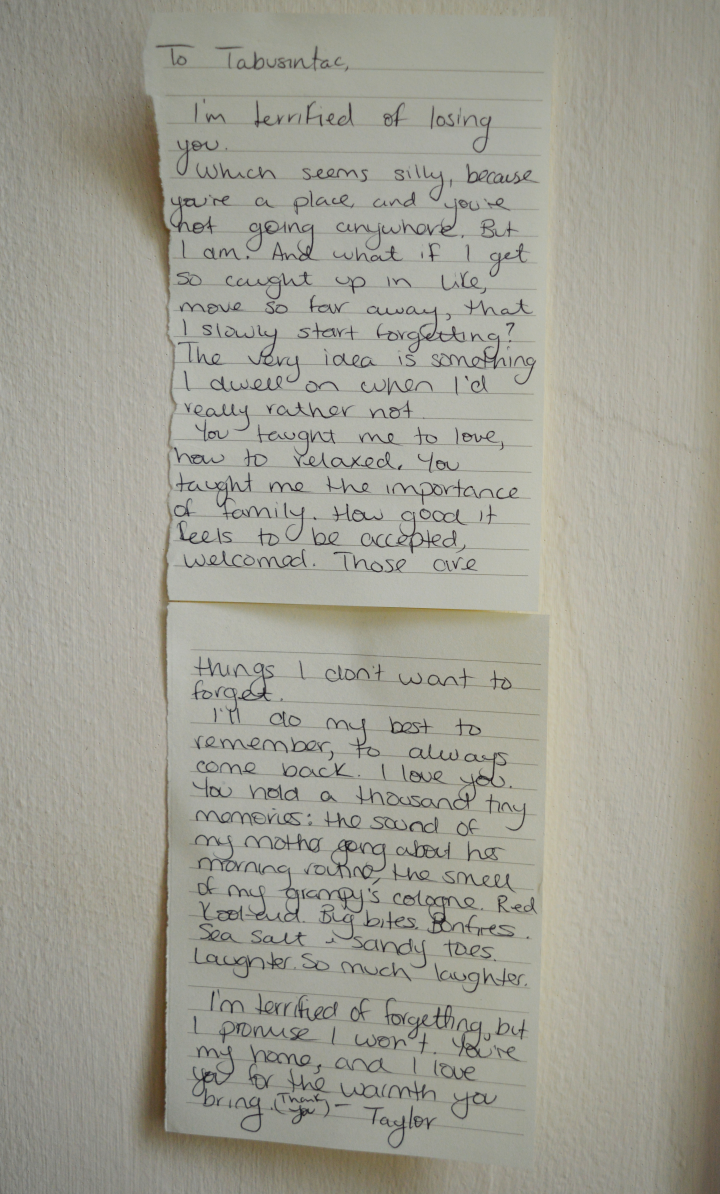 To Tabusintac,
I'm terrified of losing
you.
Which seems silly, because
you're a place and you're
not going anywhere. But
I am. And what if I get
so caught up in life,
move so far away, that
I slowly start forgetting?
The very idea is something
I dwell on when I'd
really rather not.
You taught me to love,
how to relaxed. You
taught me the importance
of family. How good it
feels to be accepted,
welcomed. Those are
things I don't want to
forget.
I'll do my best to
remember, to always
come back. I love you.
You hold a thousand tiny
memories: the sound of
my mother going about her
morning routine, the smell
of my grampy's cologne. Red
Kool-aid. Big bites. Bonfires.
Sea salt & sandy toes.
Laughter. So much laughter.
I'm terrified of forgetting, but
I promise I won't. You're
my home, and I love
you for the warmth you
bring. (Thank you) - Taylor